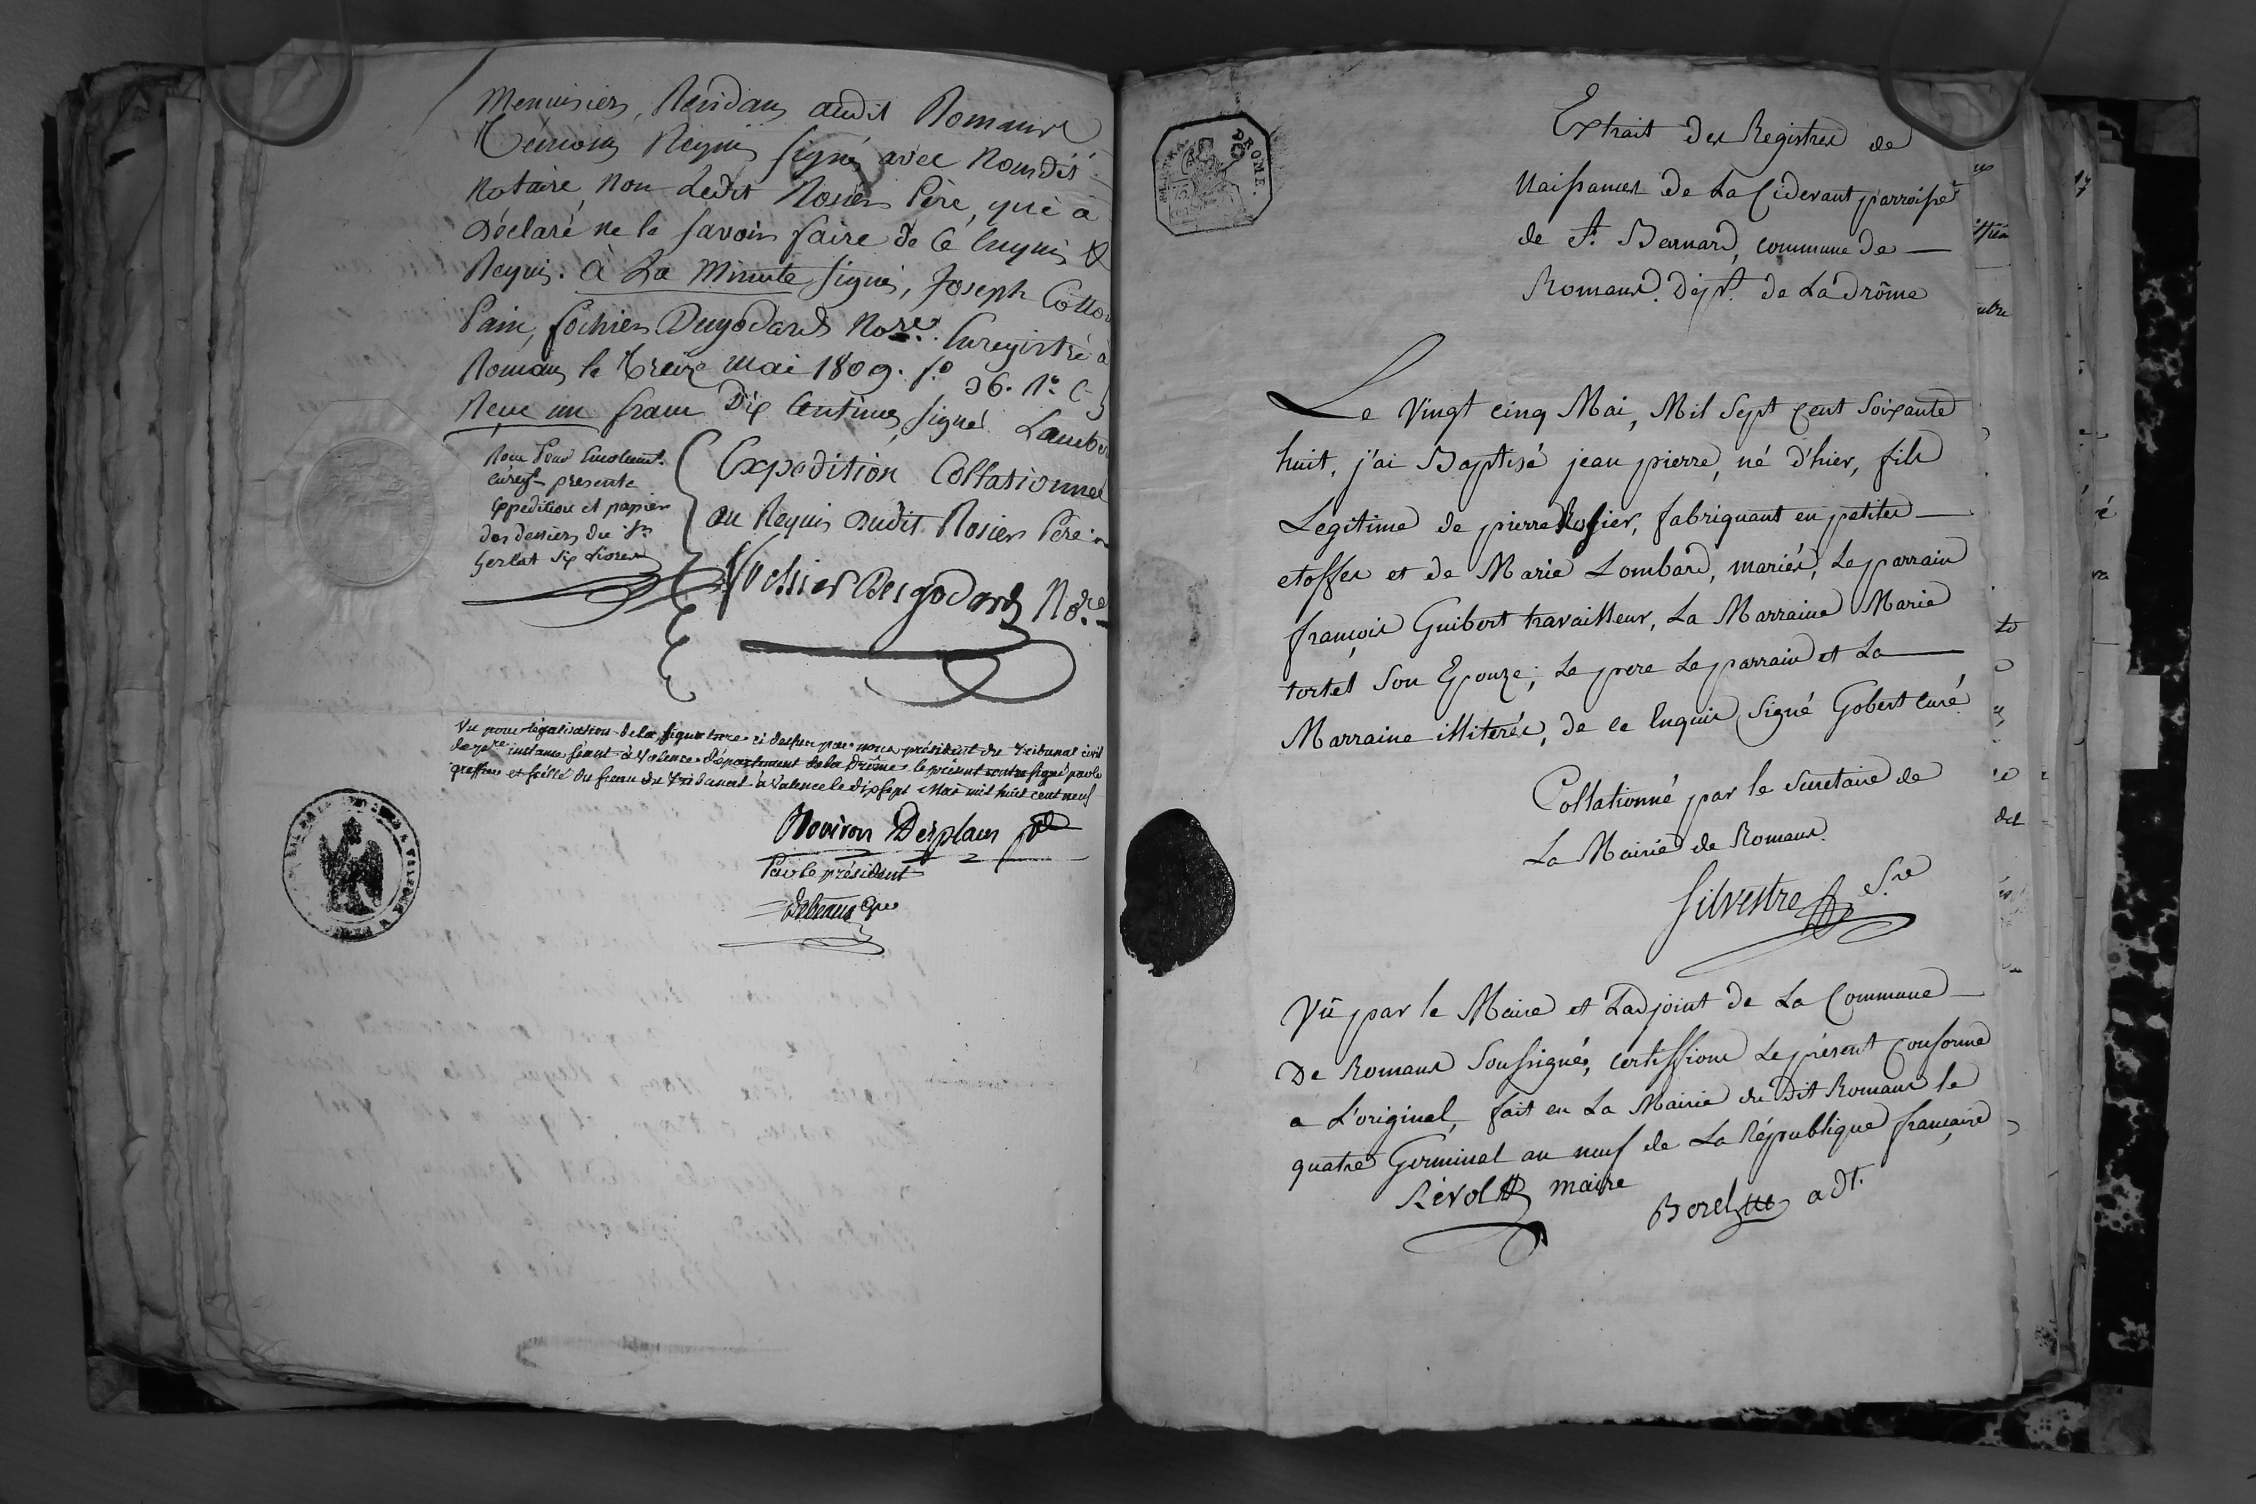 Menuisiers, Residans audit Romans
temoins Requis signés avec nousdit
Notaire, non Ledit Rosier Père, qui a
Déclaré ne le savoir faire de Ce Enquis &
Requis. a La Minute signés, Joseph Cotton
Pain, fochier Desgodards Nore. Enregistré a
Romans le treize mai 1809. f.o 96. r.o C. 5
Reçu un franc Dix Centimes, signé Lambert
Pour Emolumt.
presente
Expedition et papier
des dossiers du Sr
Gerlat six Livres
Expedition Collationnée
au Requis dudit Rosier Père
Fochier Desgodards Nore.
Vu pour légalisation de la signature ci dessus par nous président du tribunal civil
de 1ere instance séant à Valence département de la Drôme le présent contresigné par le
greffier et scéllé du sceau du tribunal à Valence le dix sept Mai mil huit cent neuf
Rouviere Desplans pdt
Par le président
Debeaux Gre
DROME.
Extrait des Registres de
Naissances de La Cidevant parroisse
de St. Bernard, commune de
Romans. Dépt. de La drôme
Le Vingt cinq Mai, Mil Sept Cent Soixante
huit, j'ai Baptisé jean pierre, né d'hier, fils
Legitime de pierre Rosier, fabriquant en petites
etoffes et de Marie Lombard, mariés, Le parrain
françois Guibert travailleur, La Marraine Marie
tortel Son Epouze; Le pere Le parrain et La
Marraine illiterés, de ce Enquis Signé Gobert Curé
Collationné par le Secretaire de
La Mairie de Romans.
Silvestre Sre
Vû par le Maire et L'adjoint de La Commune
De Romans Soussignés, certiffions Le présent Conforme
a L'original, fait en La Mairie du Dit Romans le
quatre Germinal an neuf de La République française
Révol maire
Borel adt.